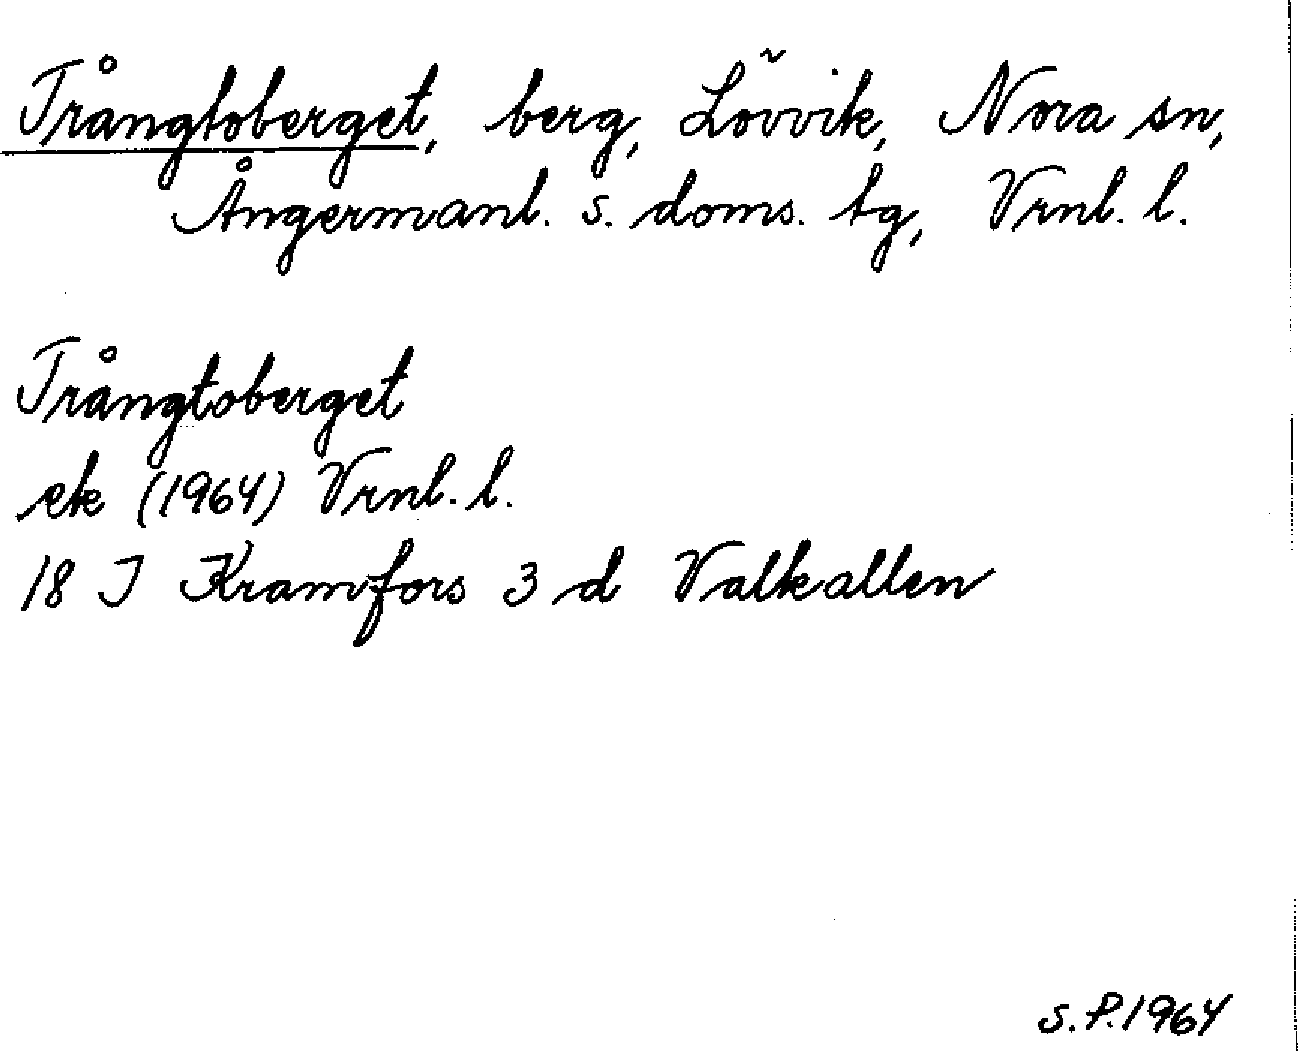 Trångtoberget, berg, Lövvik, Nora sn,
Ångermanl. s. doms. tg, Vrnl. l.
Trångtoberget
ek (1964) Vrnl. l.
18 I Kramfors 3 d Valkallen
S.P. 1964